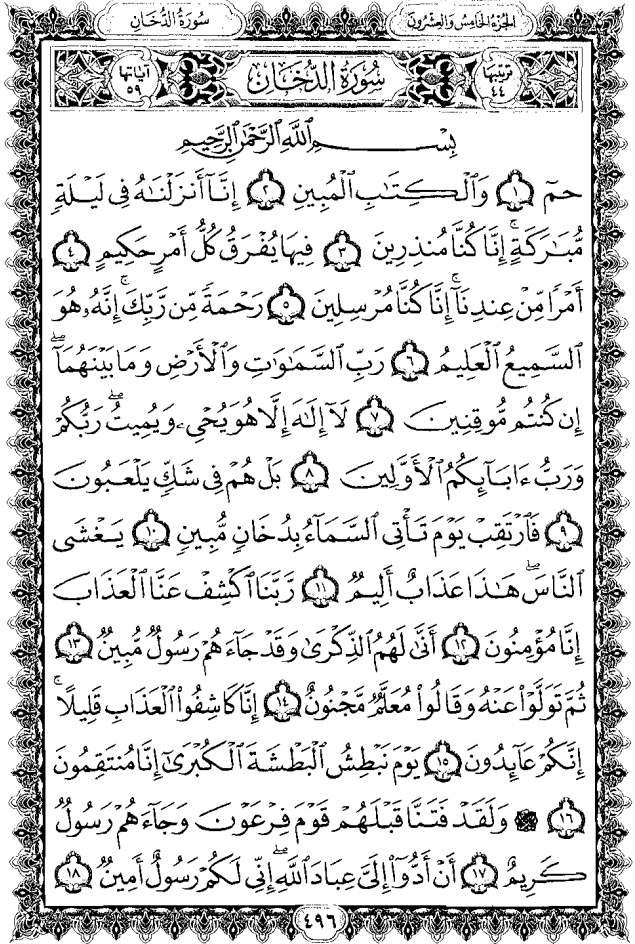 سُورَةُ الدُّخَانِ
الجُزْءُ الخَامِسُ وَالعِشْرُونَ
ترتيبها ٤٤
سُورَةُ الدُّخَانِ
آياتها ٥٩
بِسْمِ ٱللَّهِ ٱلرَّحْمَٰنِ ٱلرَّحِيمِ
حمٓ ١ وَٱلْكِتَٰبِ ٱلْمُبِينِ ٢ إِنَّآ أَنزَلْنَٰهُ فِى لَيْلَةٍ
مُّبَٰرَكَةٍ ۚ إِنَّا كُنَّا مُنذِرِينَ ٣ فِيهَا يُفْرَقُ كُلُّ أَمْرٍ حَكِيمٍ ٤
أَمْرًا مِّنْ عِندِنَآ ۚ إِنَّا كُنَّا مُرْسِلِينَ ٥ رَحْمَةً مِّن رَّبِّكَ ۚ إِنَّهُۥ هُوَ
ٱلسَّمِيعُ ٱلْعَلِيمُ ٦ رَبِّ ٱلسَّمَٰوَٰتِ وَٱلْأَرْضِ وَمَا بَيْنَهُمَآ ۖ
إِن كُنتُم مُّوقِنِينَ ٧ لَآ إِلَٰهَ إِلَّا هُوَ يُحْىِۦ وَيُمِيتُ ۖ رَبُّكُمْ
وَرَبُّ ءَابَآئِكُمُ ٱلْأَوَّلِينَ ٨ بَلْ هُمْ فِى شَكٍّ يَلْعَبُونَ
٩ فَٱرْتَقِبْ يَوْمَ تَأْتِى ٱلسَّمَآءُ بِدُخَانٍ مُّبِينٍ ١٠ يَغْشَى
ٱلنَّاسَ ۖ هَٰذَا عَذَابٌ أَلِيمٌ ١١ رَّبَّنَا ٱكْشِفْ عَنَّا ٱلْعَذَابَ
إِنَّا مُؤْمِنُونَ ١٢ أَنَّىٰ لَهُمُ ٱلذِّكْرَىٰ وَقَدْ جَآءَهُمْ رَسُولٌ مُّبِينٌ ١٣
ثُمَّ تَوَلَّوْا۟ عَنْهُ وَقَالُوا۟ مُعَلَّمٌ مَّجْنُونٌ ١٤ إِنَّا كَاشِفُوا۟ ٱلْعَذَابِ قَلِيلًا ۚ
إِنَّكُمْ عَآئِدُونَ ١٥ يَوْمَ نَبْطِشُ ٱلْبَطْشَةَ ٱلْكُبْرَىٰٓ إِنَّا مُنتَقِمُونَ
١٦ ۞ وَلَقَدْ فَتَنَّا قَبْلَهُمْ قَوْمَ فِرْعَوْنَ وَجَآءَهُمْ رَسُولٌ
كَرِيمٌ ١٧ أَنْ أَدُّوٓا۟ إِلَىَّ عِبَادَ ٱللَّهِ ۖ إِنِّى لَكُمْ رَسُولٌ أَمِينٌ ١٨
٤٩٦